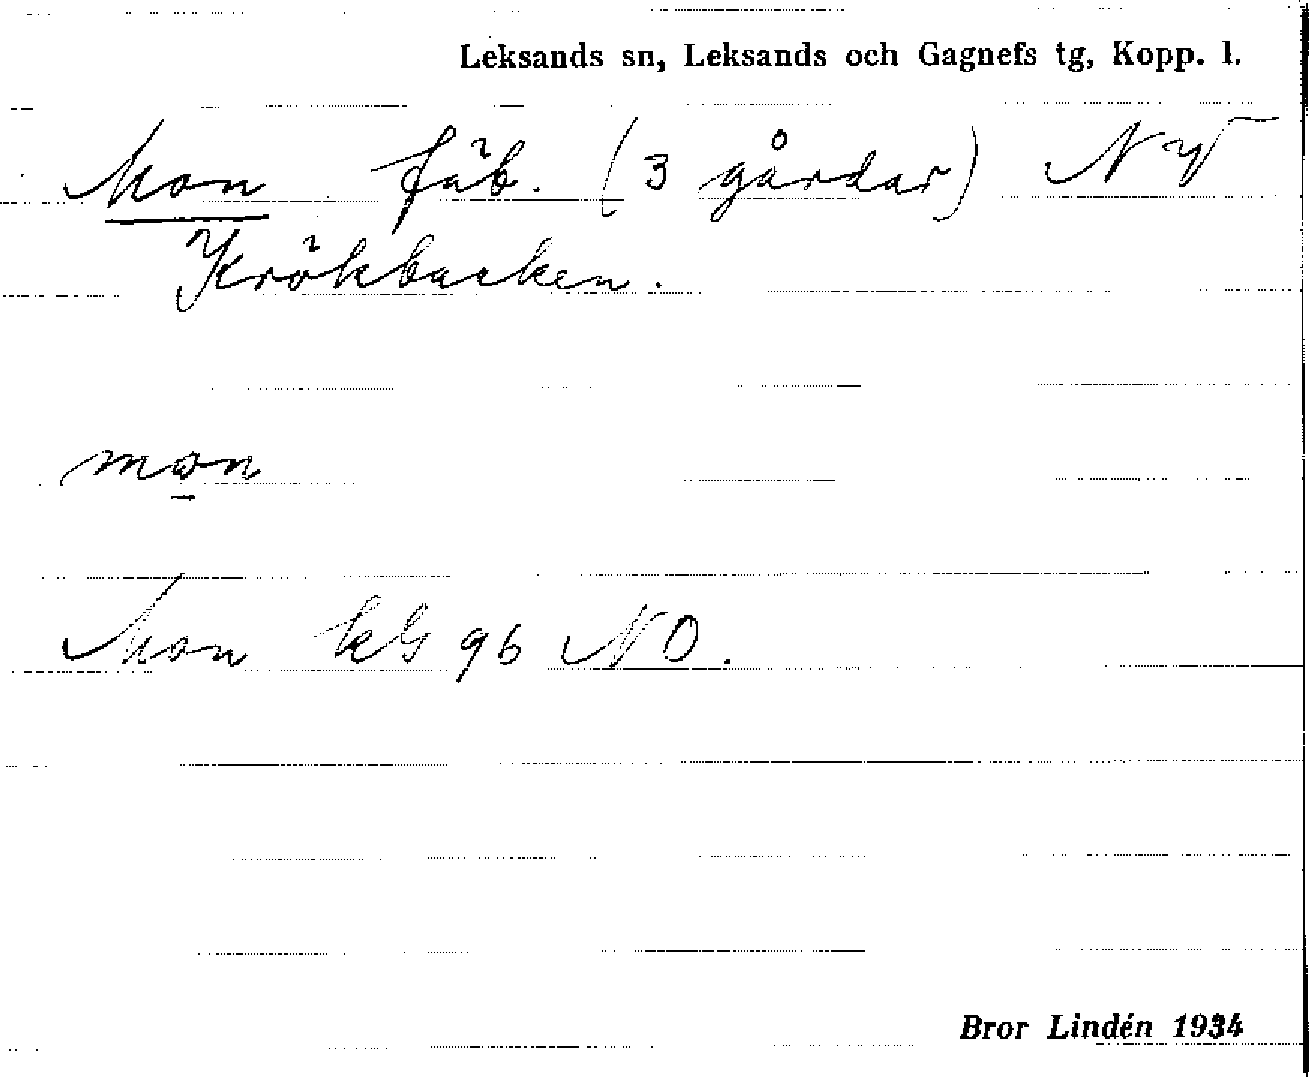 Leksands sn, Leksands och Gagnefs tg, Kopp. l.
Mon fäb. (3 gårdar) NV
Krökbacken.
mon
Mon kbl 96 NO.
Bror Lindén 1934